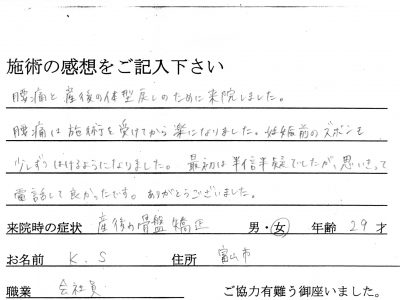 施術の感想をご記入下さい
腰痛と産後の体型戻しのために来院しました。
腰痛は施術を受けてから楽になりました。妊娠前のズボンも
少しずつはけるようになりました。 最初は半信半疑でしたが、思いきって
電話して良かったです。ありがとうございました。
来院時の症状 産後の骨盤矯正 男・女 年齢 29 才
お名前 K.S 住所 富山市
職業 会社員 ご協力有難う御座いました。